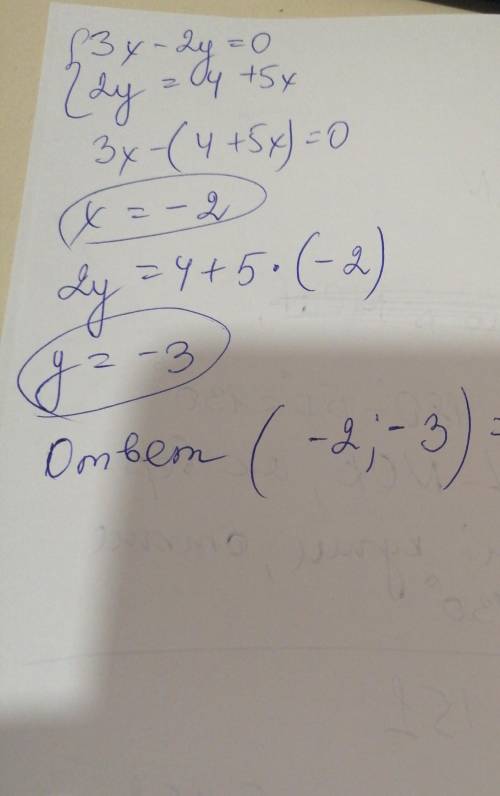 {3x - 2y = 0
{2y = 4 + 5x
3x - (4 + 5x) = 0
x = -2
2y = 4 + 5 · (-2)
y = -3
Ответ (-2; -3)